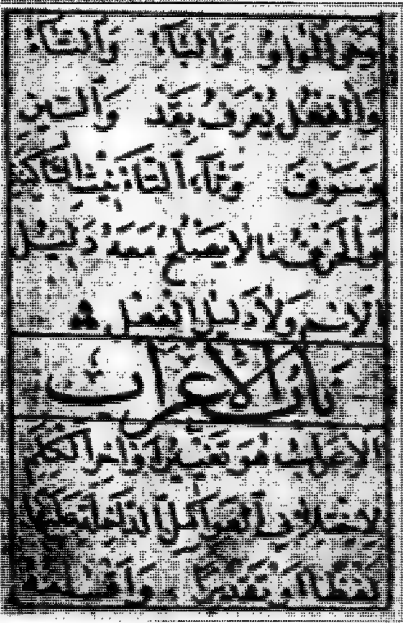 وَهِيَ الْوَاوُ وَالْبَآءُ وَالتَّآءُ
وَالْفِعْلُ يُعْرَفُ بِقَدْ وَالسِّينِ
وَسَوْفَ وَتَآءِ التَّأْنِيثِ السَّاكِنَةِ
وَالْحَرْفُ مَا لَا يَصْلُحُ مَعَهُ دَلِيلُ
الْاِسْمِ وَلَا دَلِيلُ الْفِعْلِ
بَابُ الْاِعْرَابِ
الْاِعْرَابُ هُوَ تَغْيِيرُ أَوَاخِرِ الْكَلِمِ
لِاخْتِلَافِ الْعَوَامِلِ الدَّاخِلَةِ عَلَيْهَا
لَفْظًا اَوْ تَقْدِيرًا وَأَقْسَامُهُ